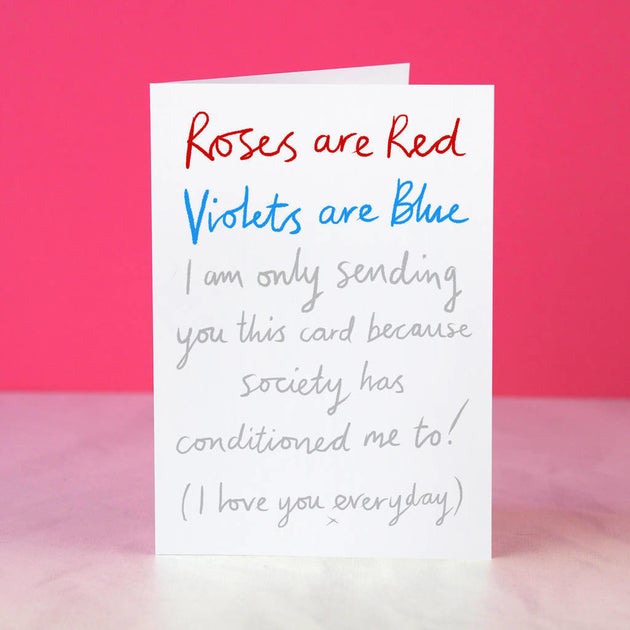 Roses are Red
Violets are Blue
I am only sending
you this card because
society has
conditioned me to!
(I love you everyday)